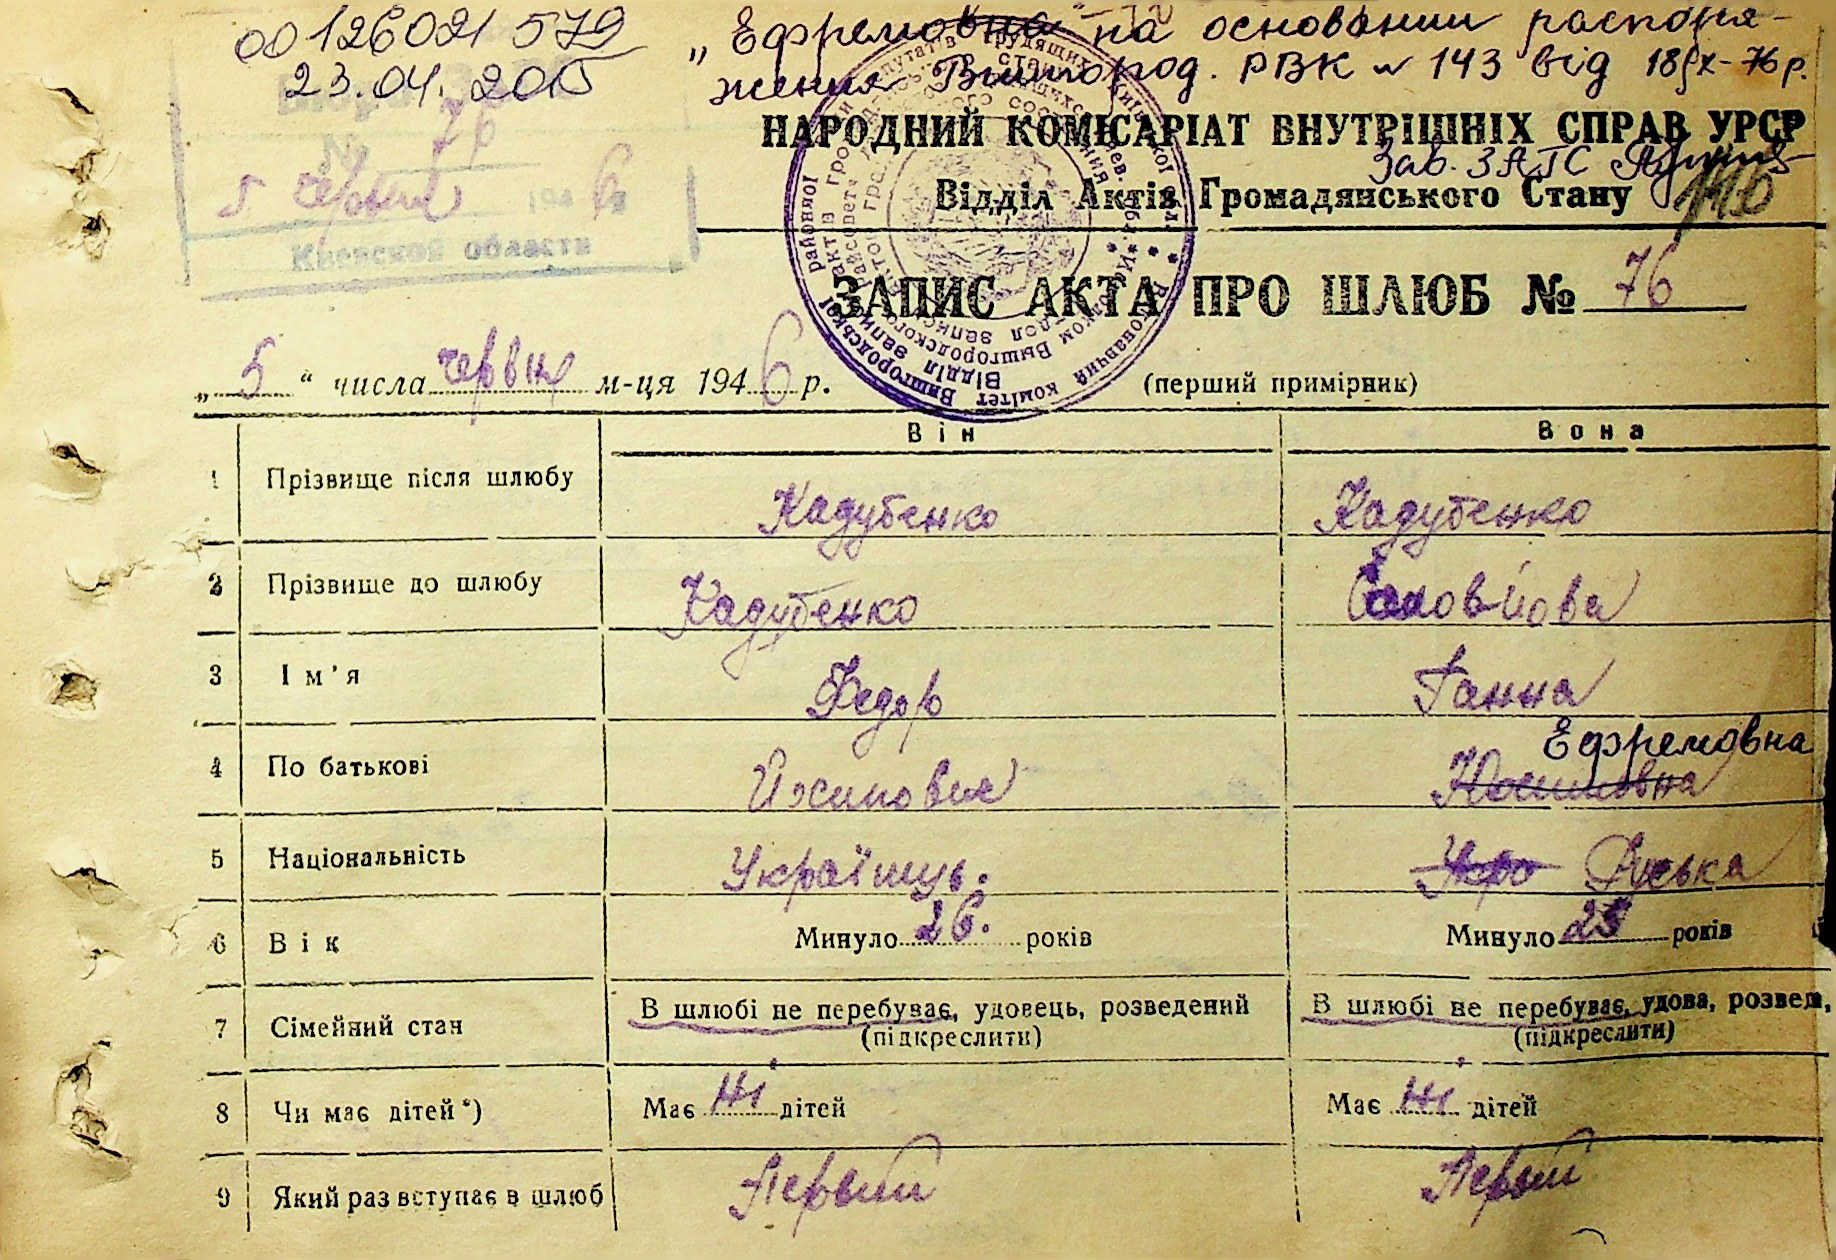 00126021579
23.04.2015
„Ефремовна" на основании распоря-
жения Вышгород. РВК № 143 від 18/ІХ-76р.
НАРОДНИЙ КОМІСАРІАТ ВНУТРІШНІХ СПРАВ УРСР
Зав. ЗАГС
Відділ Актів Громадянського Стану
№ 76
5 червня 1946
Киевской области
ЗАПИС АКТА ПРО ШЛЮБ № 76
„ 5 " числа червня м-ця 1946 р. (перший примірник)
Він Вона
1 Прізвище після шлюбу Кадубенко Кадубенко
2 Прізвище до шлюбу Кадубенко Соловйова
3 Ім'я Федор Ганна
4 По батькові Йосипович Ефремовна
5 Національність Українець. Укра Руська
6 Вік Минуло 26. років Минуло 25 років
7 Сімейний стан В шлюбі не перебуває, удовець, розведений В шлюбі не перебуває, удова, розведе,
(підкреслити) (підкреслити)
8 Чи має дітей*) Має ні дітей Має ні дітей
9 Який раз вступає в шлюб Первий Первий